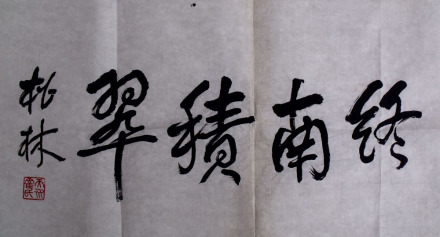 终南積翠
松林